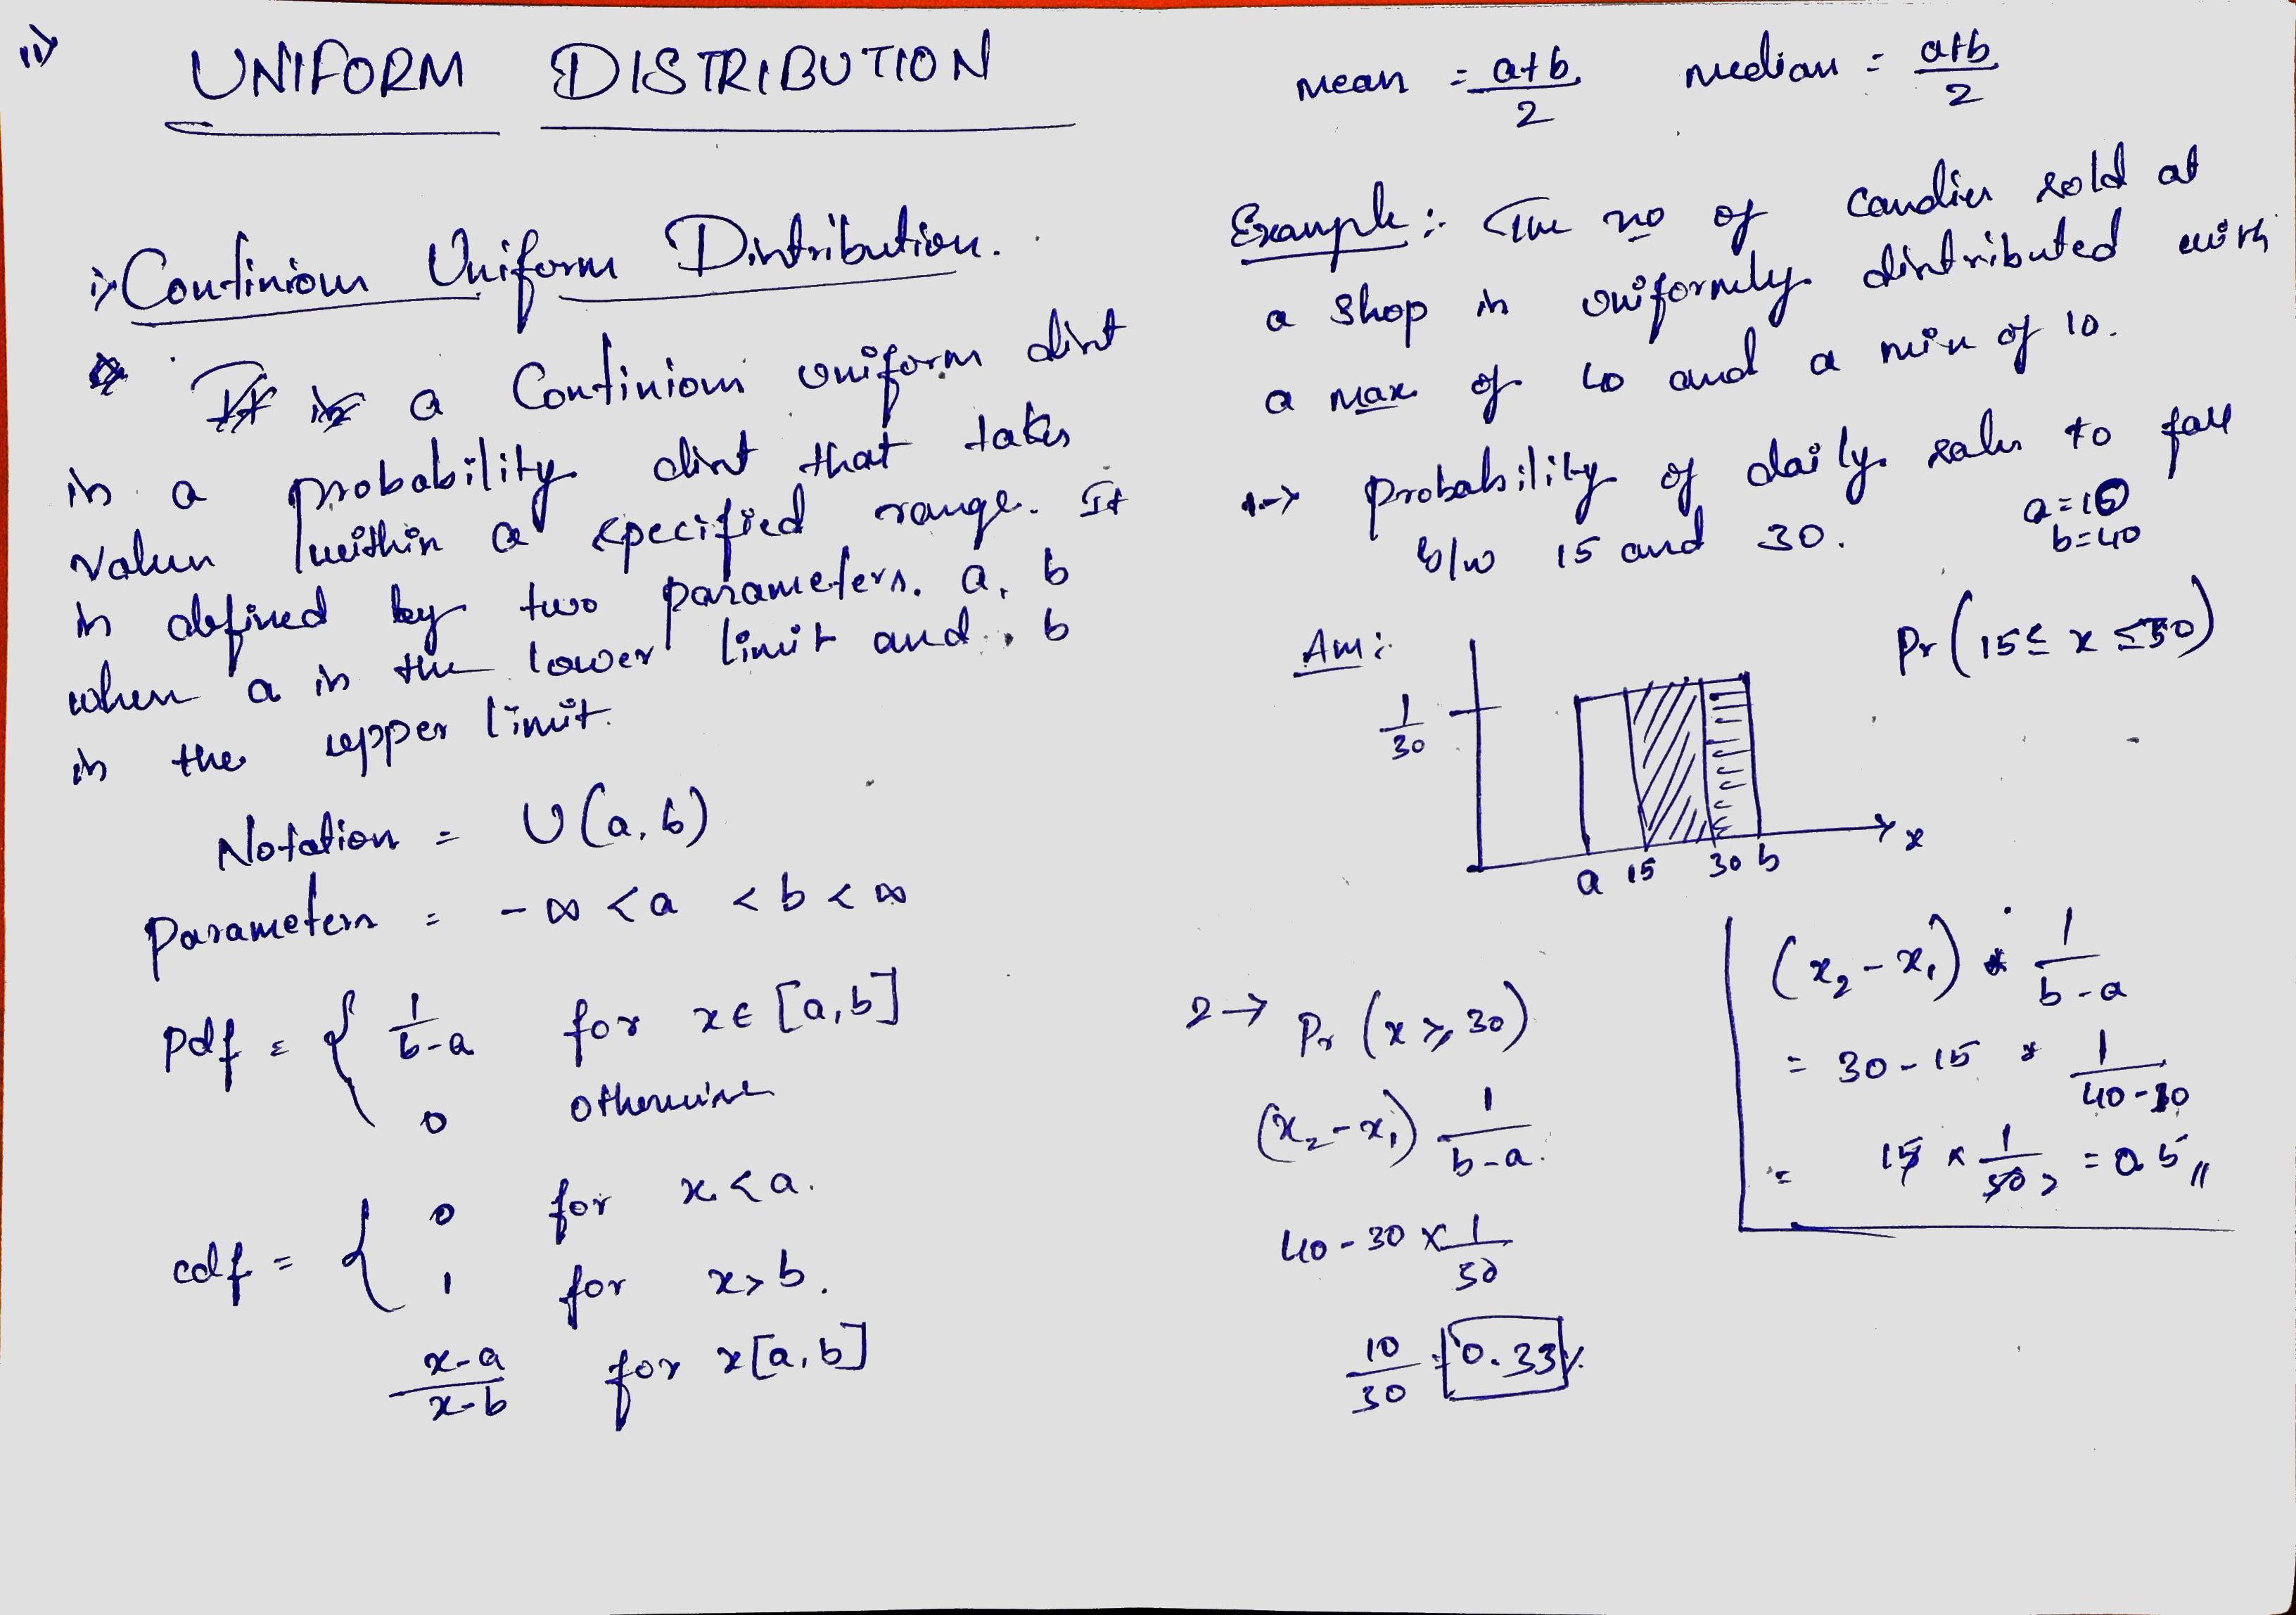 ii>
UNIFORM DISTRIBUTION
i> Continious Uniform Distribution.
a Continious uniform dist
is a probability dist that takes
values within a specified range. It
is defined by two parameters. a, b
where a is the lower limit and b
is the upper limit.
Notation = U(a, b)
Parameters = -∞ < a < b < ∞
Pdf = { 1/(b-a) for x ∈ [a, b]
0 otherwise
cdf = { 0 for x < a.
1 for x > b.
(x-a)/(x-b) for x[a, b]
mean = (a+b)/2 median = (a+b)/2
Example:- The no of candies sold at
a shop is uniformly distributed with
a max of 40 and a min of 10.
1-> Probability of daily sales to fall
b/w 15 and 30.
a=10
b=40
Ans:
Pr(15 ≤ x ≤ 30)
1/30
a 15 30 b x
(x₂ - x₁) * 1/(b-a)
= 30-15 * 1/(40-10)
= 15 x 1/30 2 = 0.5//
2-> Pr(x ≥ 30)
(x₂ - x₁) 1/(b-a)
40-30 x 1/30
10/30 = 0.33%